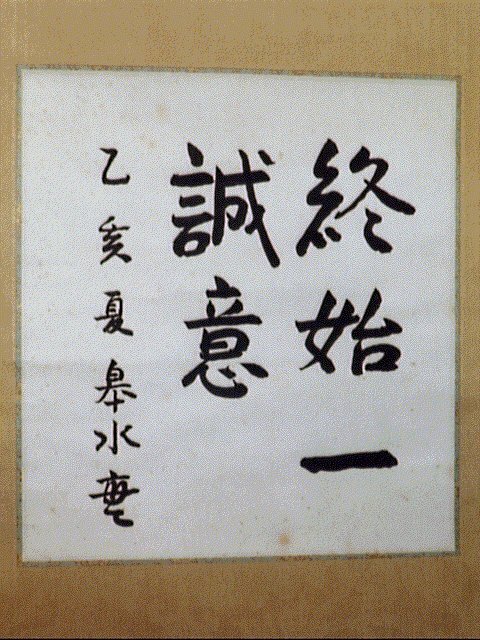 終始一
誠意
乙亥夏皋水書